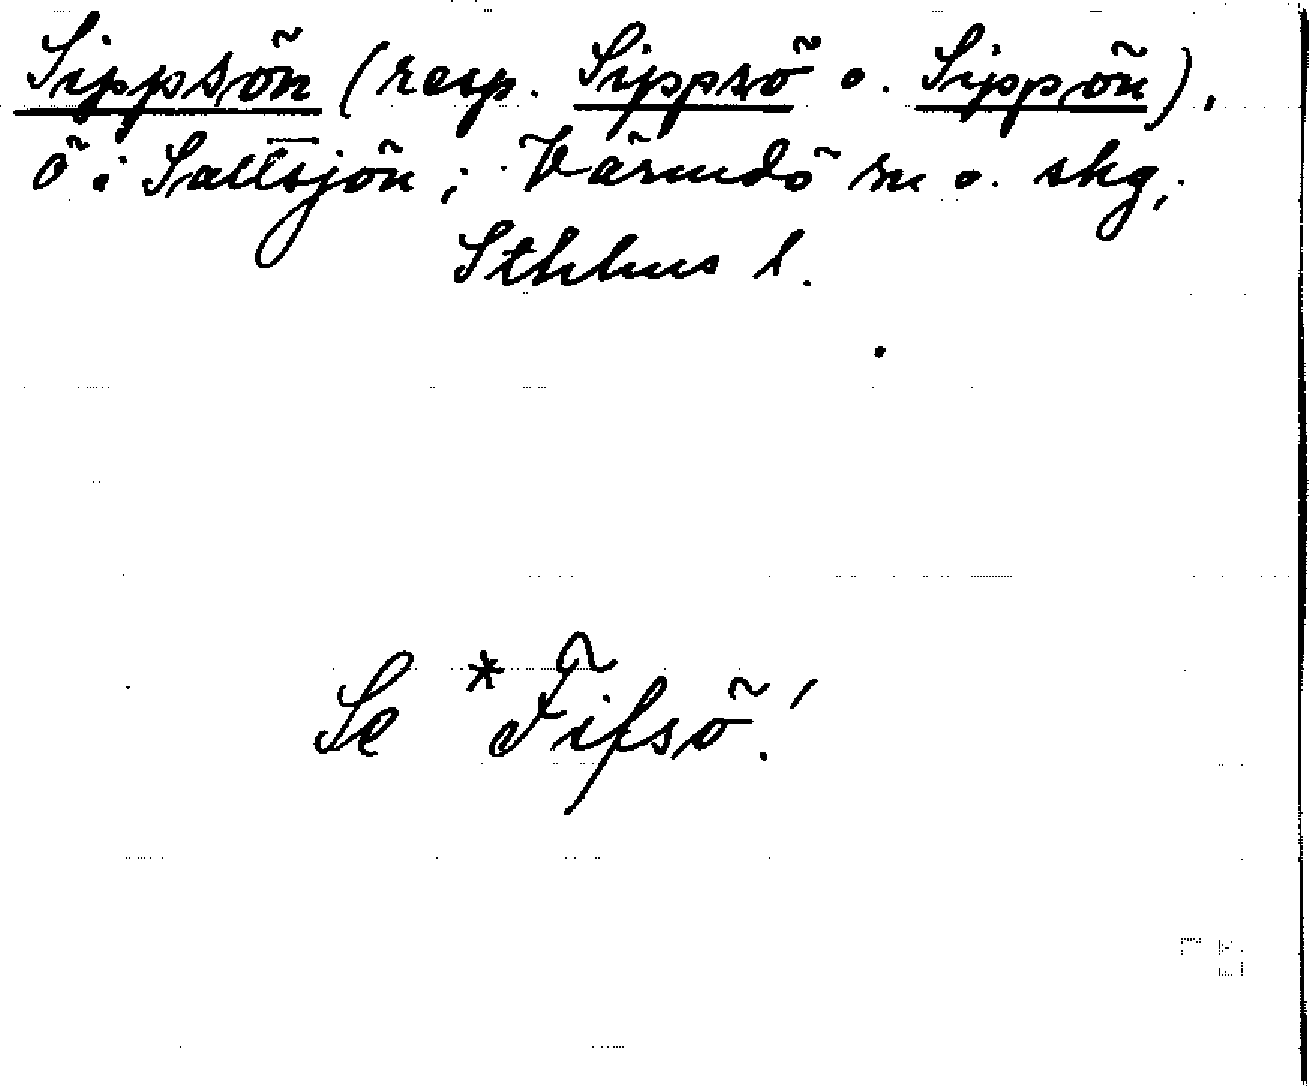 Sippsön (resp. Sippsö o. Sippön),
ö i Saltsjön; Värmdö sn o. skg,
Sthlms l.
Se *Fifsö!